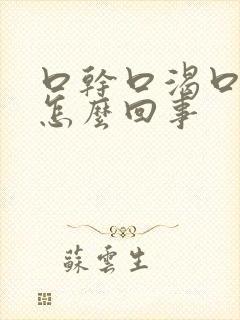 口幹口渴口
怎麼回事
蘇雲生